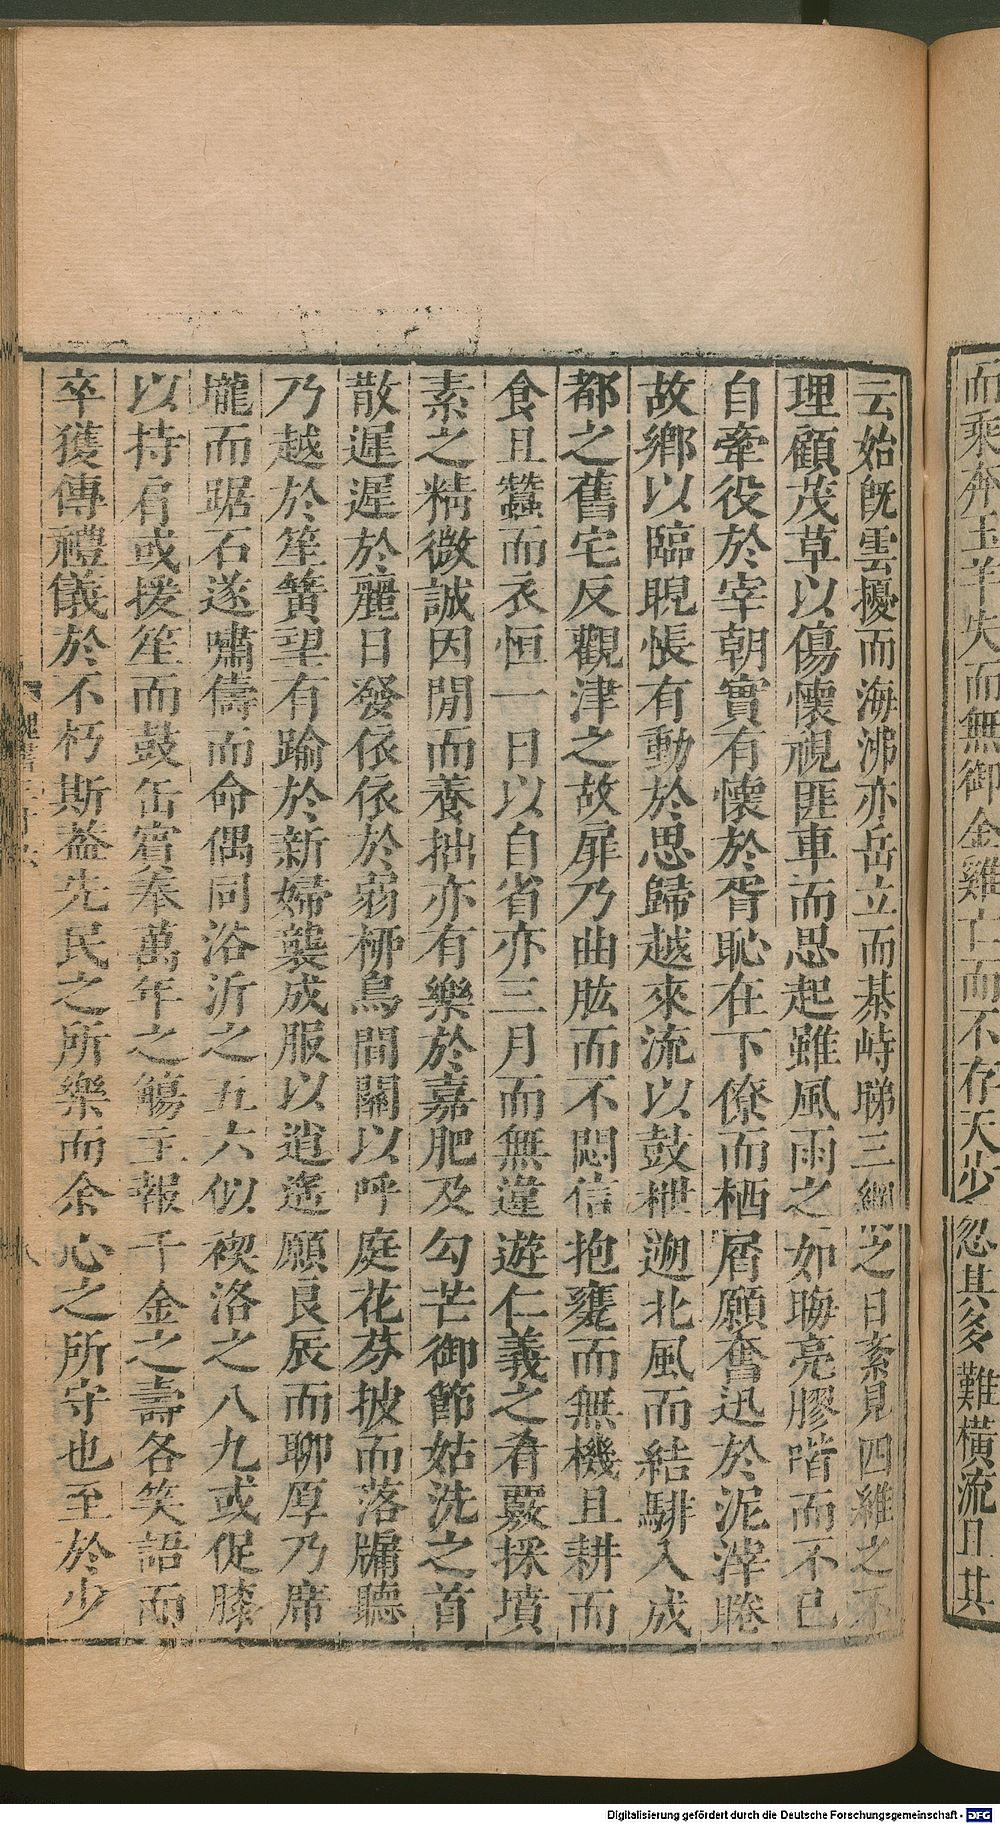 而乘奔玉羊失而無御金雞亡而不存天步忍其多難橫流且其
云始旣雲擾而海沸亦岳立而棊峙睇三綱之日紊見四維之不
理顧茂草以傷懷視匪車而思起雖風雨之如晦亮膠喈而不已
自牽役於宰朝實有懷於胥恥在下僚而栖屑願奮迅於泥滓睠
故鄉以臨睨悵有動於思歸越來流以鼓枻遡北風而結騑入成
都之舊宅反觀津之故扉乃曲肱而不悶信抱甕而無機且耕而
食且蠶而衣恒一日以自省亦三月而無違遊仁義之肴覈採墳
素之精微誠因閒而養拙亦有樂於嘉肥及勾芒御節姑洗之首
散遲遲於麗日發依依於弱桺鳥間關以呼庭花芬披而落牖聽
乃越於笙簧望有踰於新婦襲成服以逍遙願良辰而聊厚乃席
壠而踞石遂嘯儔而命偶同浴沂之五六似禊洛之八九或促膝
以持肩或援笙而鼓缶賓奉萬年之觴主報千金之壽各笑語而
卒獲傳禮儀於不朽斯益先民之所樂而余心之所守也至於少
Digitalisierung gefördert durch die Deutsche Forschungsgemeinschaft - DFG